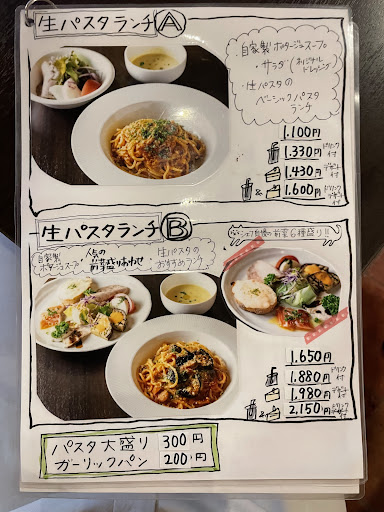 生パスタランチ Ⓐ
・自家製ポタージュスープ
・サラダ(オリジナルドレッシング)
・生パスタの
ベーシックパスタ
ランチ
1.100円
1.330円 ドリンク付
1.430円 デザート付
& 1.600円 ドリンク デザート付
生パスタランチ Ⓑ
自家製
ポタージュスープ
人気の
前菜盛りあわせ
生パスタの
おすすめランチ
シェフ自慢の前菜6種盛り!!
1.650円
1.880円 ドリンク付
1.980円 デザート付
& 2,150円 ドリンク デザート付
パスタ大盛り 300円
ガーリックパン 200円